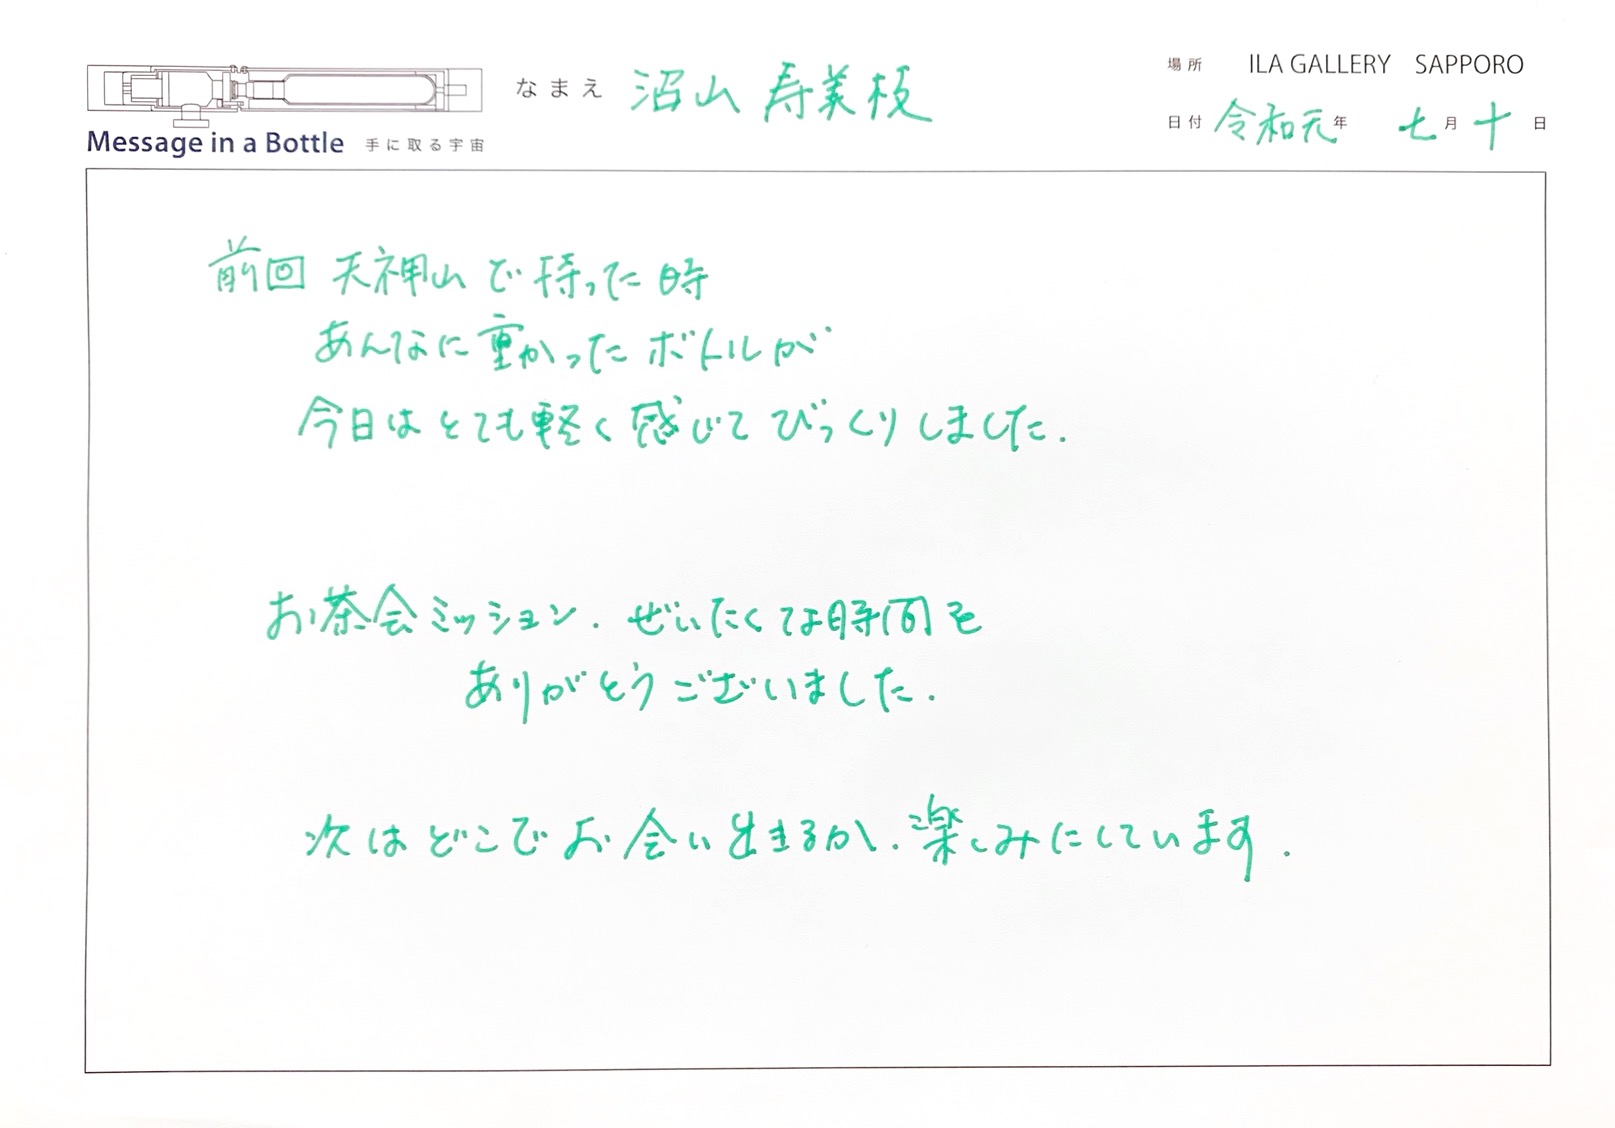 Message in a Bottle 手に取る宇宙
なまえ 沼山 寿美枝
場所 ILA GALLERY SAPPORO
日付 令和元年 七月十日
前回 天神山で持った時
あんなに重かったボトルが
今日はとても軽く感じてびっくりしました.
お茶会ミッション. ぜいたくな時間を
ありがとうございました.
次はどこでお会い出きるか、楽しみにしています.